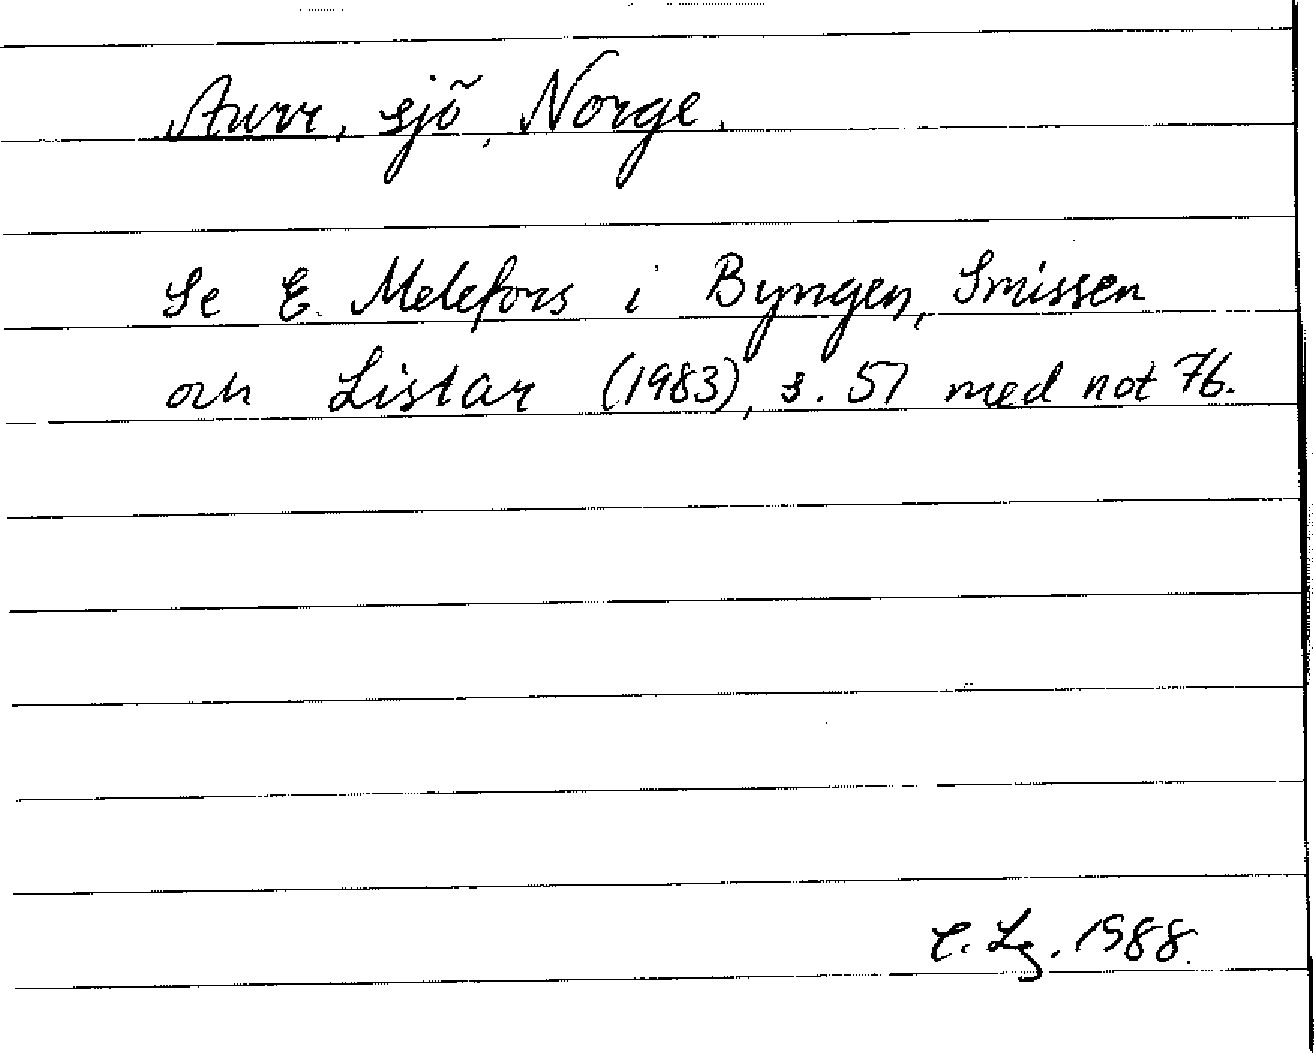 Aurr, sjö, Norge.
Se E. Melefors i Byngen, Smissen
och Listar (1983), s. 57 med not 76.
C. Lg. 1988.